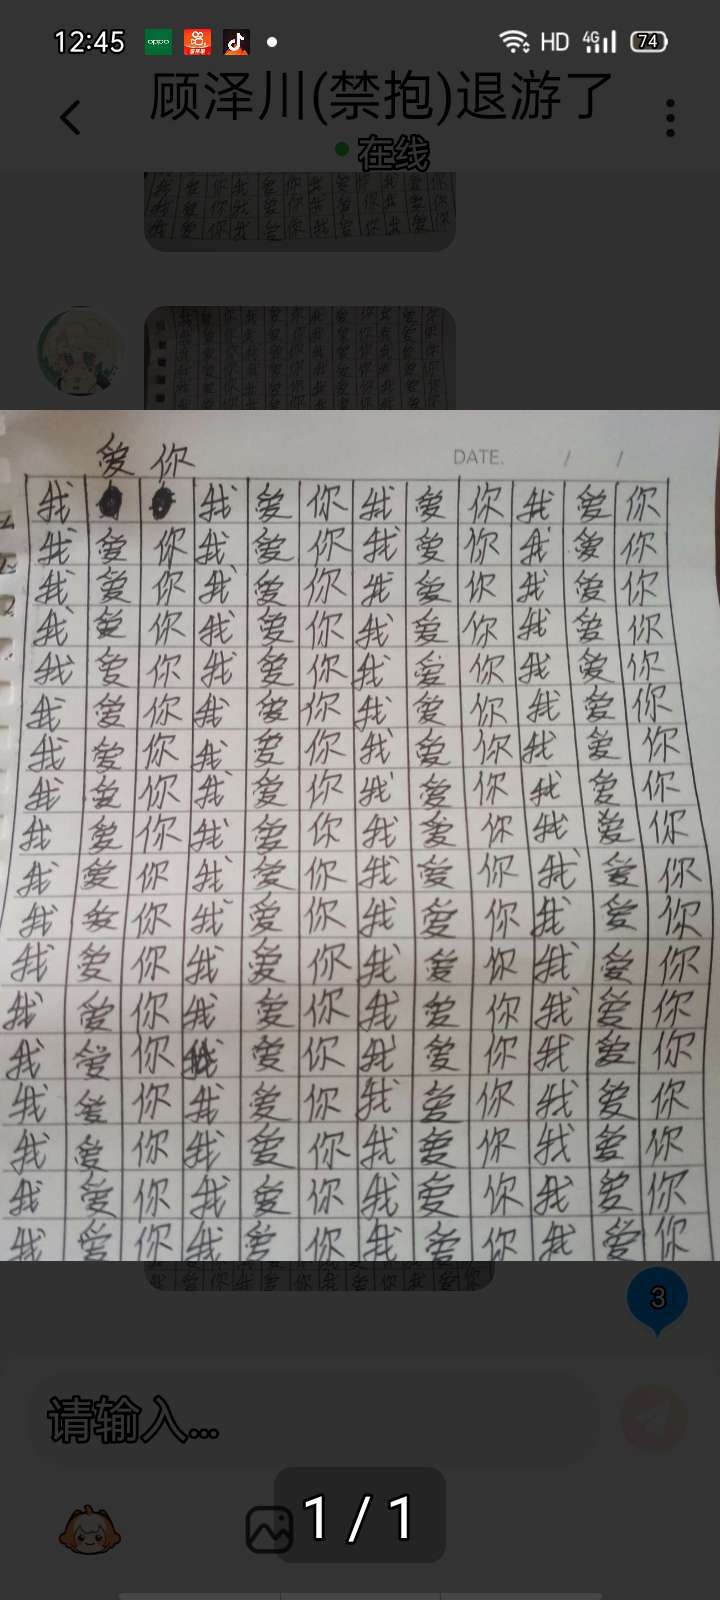 12:45 oppo HD 4G 74
顾泽川(禁抱)退游了
在线
爱你
DATE. / /
我 你我爱你我爱你
我爱你我爱你我爱你我爱你
我爱你我爱你我爱你我爱你
我爱你我爱你我爱你我爱你
我爱你我爱你我爱你我爱你
我爱你我爱你我爱你我爱你
我爱你我爱你我爱你我爱你
我爱你我爱你我爱你我爱你
我爱你我爱你我爱你我爱你
我爱你我爱你我爱你我爱你
我爱你我爱你我爱你我爱你
我爱你我爱你我爱你我爱你
我爱你我爱你我爱你我爱你
我爱你我爱你我爱你我爱你
我爱你我爱你我爱你我爱你
我爱你我爱你我爱你我爱你
我爱你我爱你我爱你我爱你
我爱你我爱你我爱你我爱你
3
请输入...
1 / 1